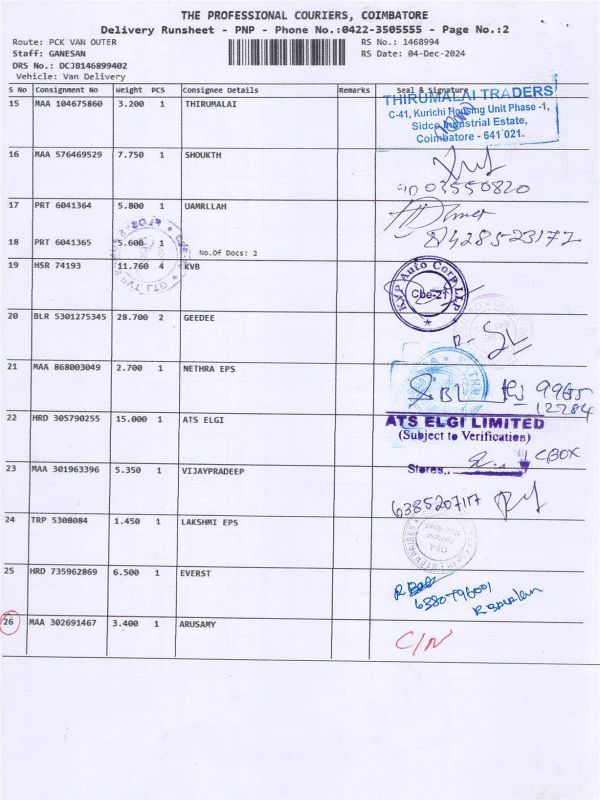 THE PROFESSIONAL COURIERS, COIMBATORE
Delivery Runsheet - PNP - Phone No.:0422-3505555 - Page No.:2
Route: PCK VAN OUTER RS No.: 1468994
Staff: GANESAN RS Date: 04-Dec-2024
DRS No.: DCJB146899402
Vehicle: Van Delivery
S No Consignment No Weight PCS Consignee Details Remarks Seal & Signature
15 MAA 104675860 3.200 1 THIRUMALAI
THIRUMALAI TRADERS
C-41, Kurichi Housing Unit Phase -1,
Sidco Industrial Estate,
Coimbatore - 641 021.
16 MAA 576469529 7.750 1 SHOUKTH
9003550820
17 PRT 6041364 5.800 1 UAMRLLAH
8428523172
18 PRT 6041365 5.600 1
No.Of Docs: 2
19 HSR 74193 11.760 4 KVB
KVP Auto Corp LLP
Cbe-21
20 BLR 5301275345 28.700 2 GEEDEE
21 MAA 868003049 2.700 1 NETHRA EPS
22 HRD 305790255 15.000 1 ATS ELGI
ATS ELGI LIMITED
(Subject to Verification)
Stores
C BOX
23 MAA 301963396 5.350 1 VIJAYPRADEEP
6385207117
24 TRP 5308084 1.450 1 LAKSHMI EPS
25 HRD 735962869 6.500 1 EVERST
6380796001
26 MAA 302691467 3.400 1 ARUSAMY
C/N